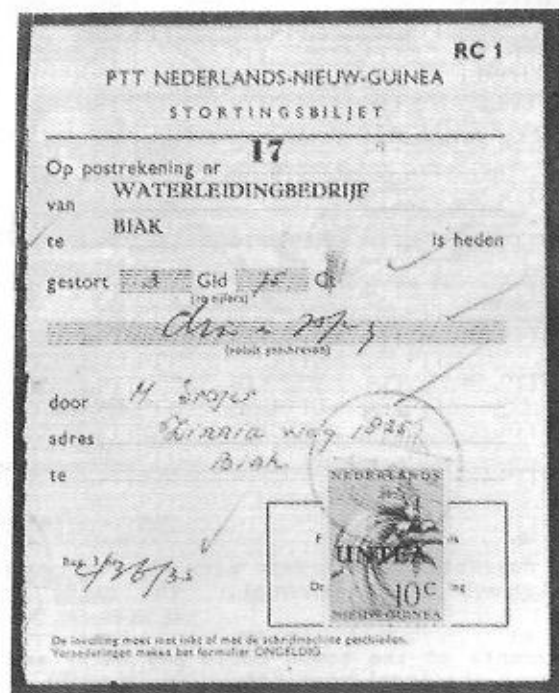 RC 1
PTT NEDERLANDS-NIEUW-GUINEA
STORTINGSBILJET
Op postrekening nr 17
van WATERLEIDINGBEDRIJF
te BIAK is heden
gestort 3 Gld 75 Ct
(in cijfers)
(voluit geschreven)
door H.
adres Zinnia weg 1825
te Biak
NEDERLANDS
UNTEA
10 C
NIEUW-GUINEA
De invulling moet met inkt of met de schrijfmachine geschieden.
Veranderingen maken het formulier ONGELDIG.